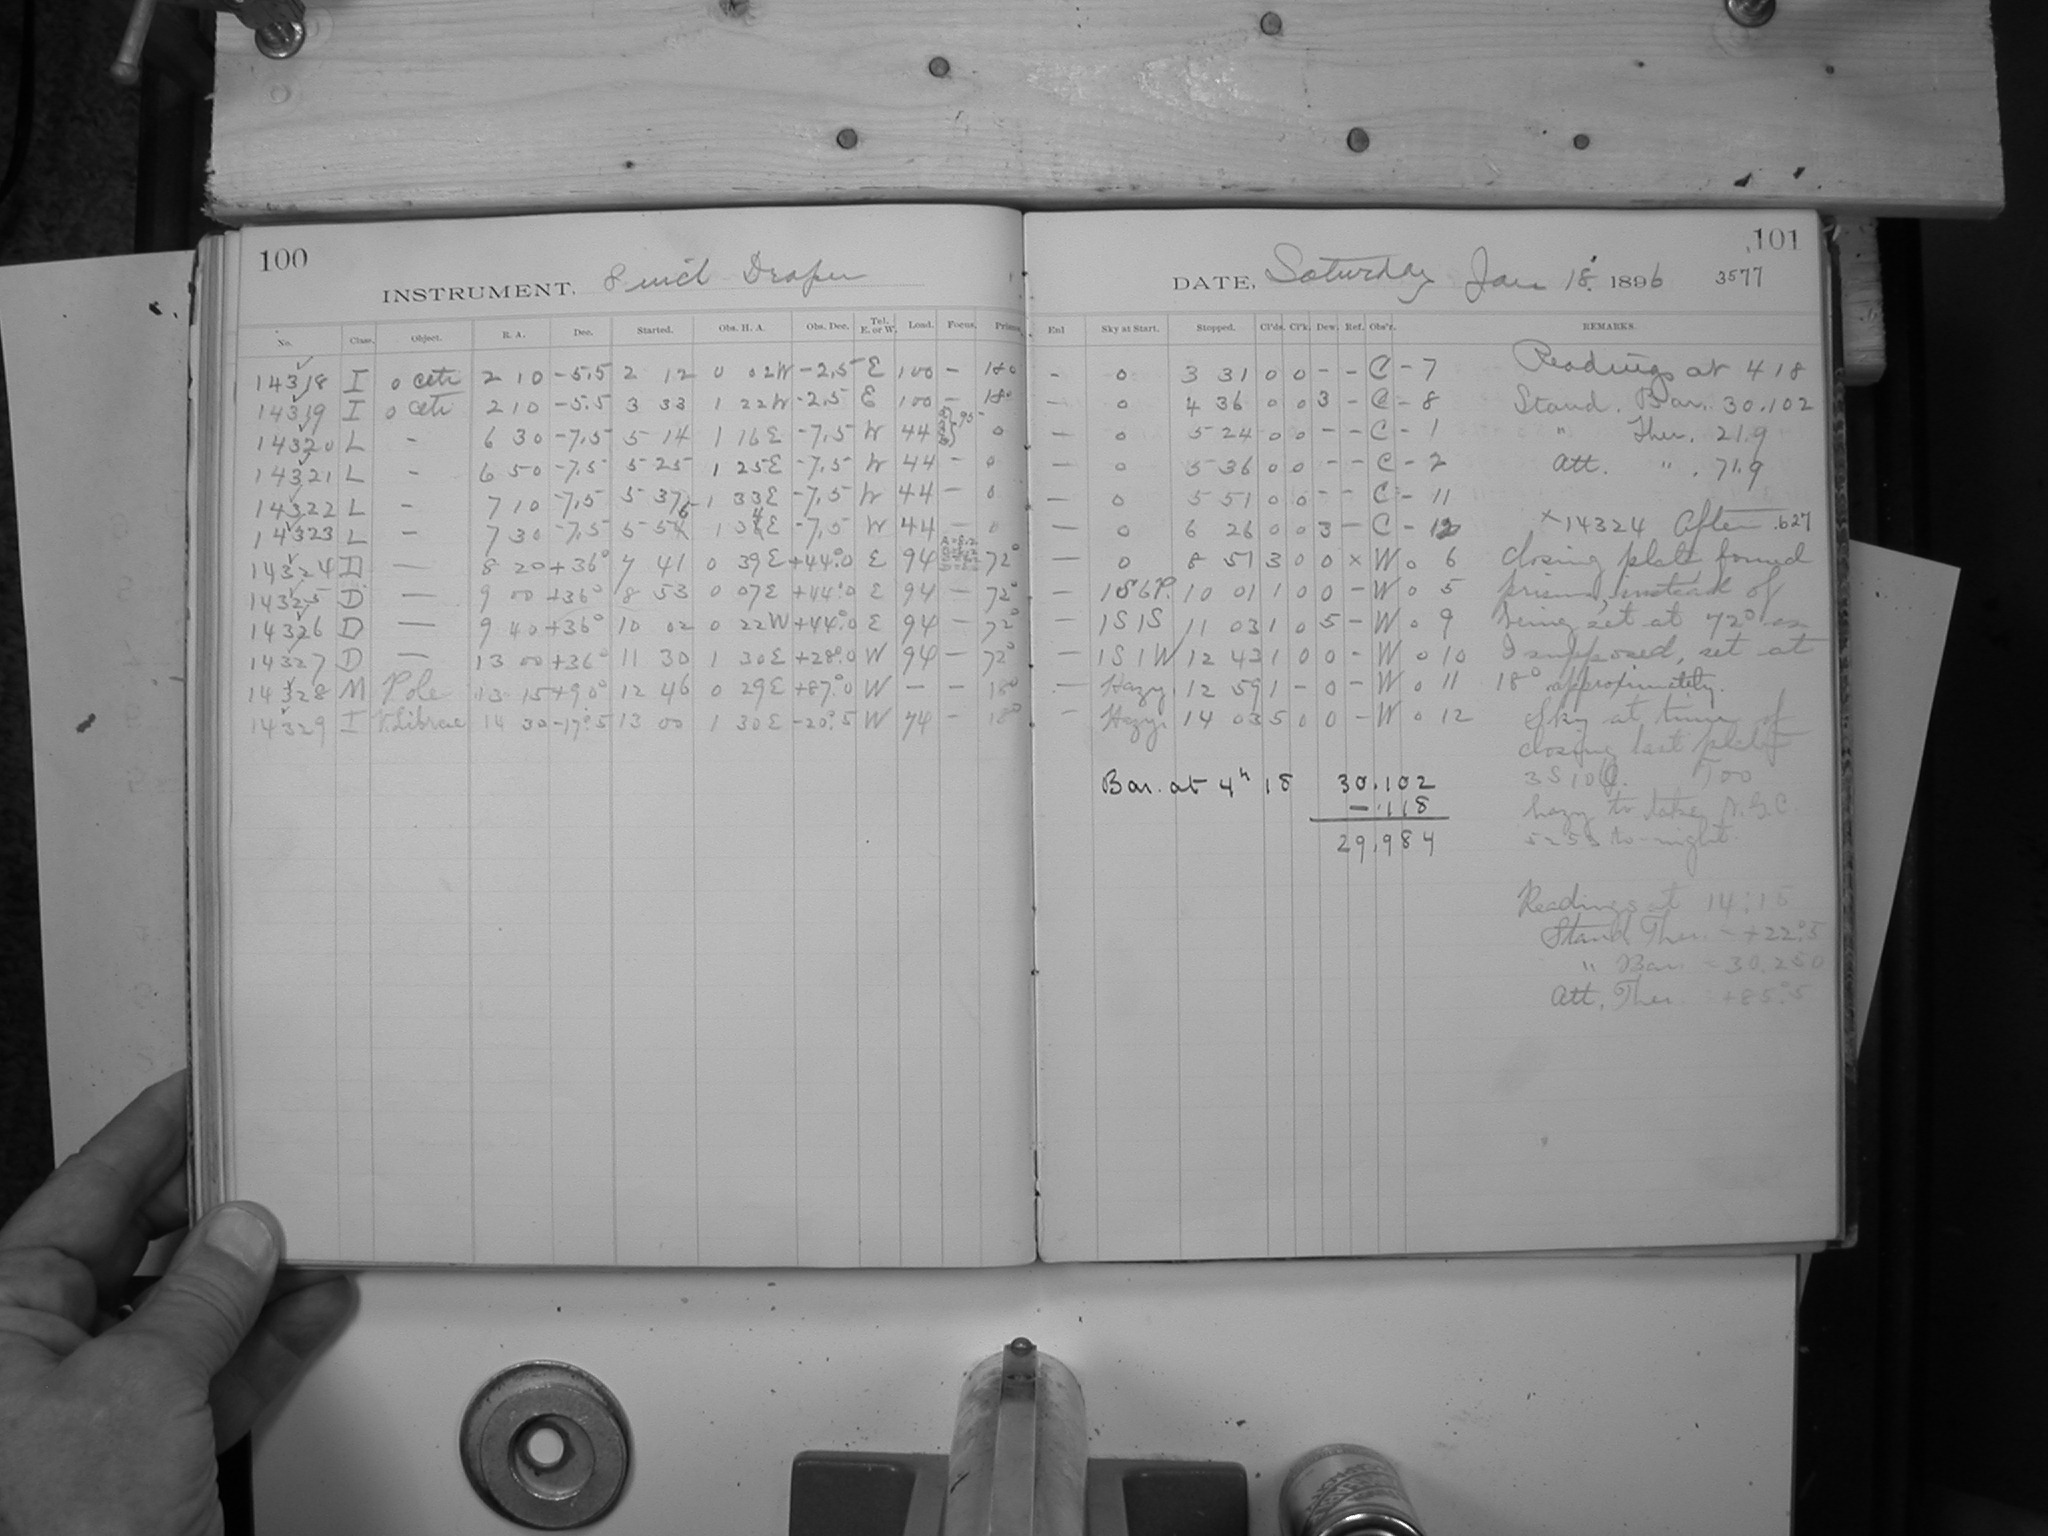 100
INSTRUMENT. 8 inch Draper
No. Class. Object. R. A. Dec. Started. Obs. H. A. Obs. Dec. Tel. E. or W. Load. Focus. Prism.
14318 I o Ceti 2 10 -5.5 2 12 0 02W -2.5 E 100 - 180
14319 I o Ceti 2 10 -5.5 3 33 1 22W -2.5 E 100 - 180
14320 L - 6 30 -7.5 5 14 1 16E -7.5 W 44 95 0
14321 L - 6 50 -7.5 5 25 1 25E -7.5 W 44 - 0
14322 L - 7 10 -7.5 5 37 1 33E -7.5 W 44 - 0
14323 L - 7 30 -7.5 5 54 1 34E -7.5 W 44 - 0
14324 D — 8 20 +36° 7 41 0 39E +44°.0 E 94 72°
14325 D — 9 00 +36° 8 53 0 07E +44°.0 E 94 - 72°
14326 D — 9 40 +36° 10 02 0 22W +44°.0 E 94 - 72°
14327 D — 13 00 +36° 11 30 1 30E +28°.0 W 94 - 72°
14328 M Pole 13 15 +90° 12 46 0 29E +87°.0 W - - 18°
14329 I V. Librae 14 30 -17°.5 13 00 1 30E -20°.5 W 74 - 18°
101
DATE, Saturday Jan 18. 1896 3577
Enl Sky at Start. Stopped. Cl'ds. Cl'k. Dew. Ref. Obs'r. REMARKS.
- 0 3 31 0 0 - - C - 7
- 0 4 36 0 0 3 - C - 8
- 0 5 24 0 0 - - C - 1
- 0 5 36 0 0 - - C - 2
- 0 5 51 0 0 - - C - 11
- 0 6 26 0 0 3 - C - 12
- 0 8 51 3 0 0 x W 0 6
- 1S6P. 10 01 1 0 0 - W 0 5
- 1S1S 11 03 1 0 5 - W 0 9
- 1S1W 12 43 1 0 0 - W 0 10
- Hazy. 12 59 1 - 0 - W 0 11
- Hazy. 14 03 5 0 0 - W 0 12
Bar. at 4h 18 30.102
-.118
29.984
Readings at 4 18
Stand. Bar. 30.102
" Ther. 21.9
Att. " . 71.9
x 14324 After .627
closing plate found
prism, instead of
being set at 72° as
I supposed, set at
18° approximately.
Sky at time of
closing last plate
3S10. Too
hazy to take N.G.C.
5253 to-night.
Readings at 14:15
Stand. Ther. - +22°.5
" Bar. - 30.250
Att. Ther. +85°.5